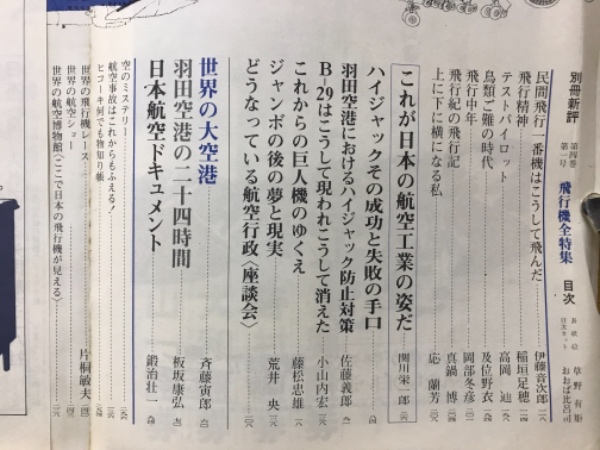 別冊新評 第四巻 第一号 飛行機全特集 目次
表紙絵 草野有知
目次カット おおば比呂司
民間飛行一番機はこうして飛んだ 伊藤音次郎
飛行精神 稲垣足穂
テストパイロット 高岡迪
鳥類ご難の時代 及位野衣
飛行中年 岡部冬彦
飛行紀の飛行記 真鍋博
上に下に横になる私 応蘭芳
これが日本の航空工業の姿だ 関川栄一郎
ハイジャックその成功と失敗の手口
羽田空港におけるハイジャック防止対策 佐藤義郎
B-29はこうして現われこうして消えた 小山内宏
これからの巨人機のゆくえ 藤松忠雄
ジャンボの後の夢と現実 荒井央
どうなっている航空行政〈座談会〉
世界の大空港 斉藤寅郎
羽田空港の二十四時間 板坂康弘
日本航空ドキュメント 鍛治壮一
空のミステリー
航空事故はこれからもふえる!
ヒコーキ何でも物知り帳
世界の飛行機レース 片桐敏夫
世界の航空ショー
世界の航空博物館〈ここで日本の飛行機が見える〉